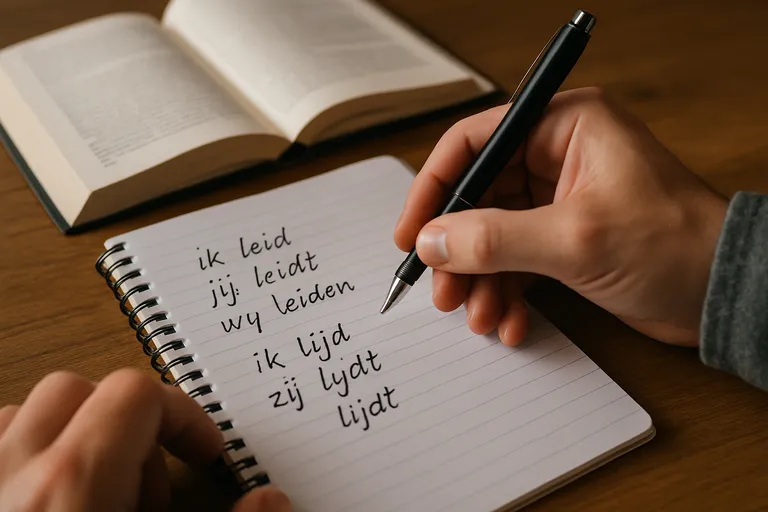 ik leid
jij leidt
wy leiden
ik lijd
zij lydt
lijdt